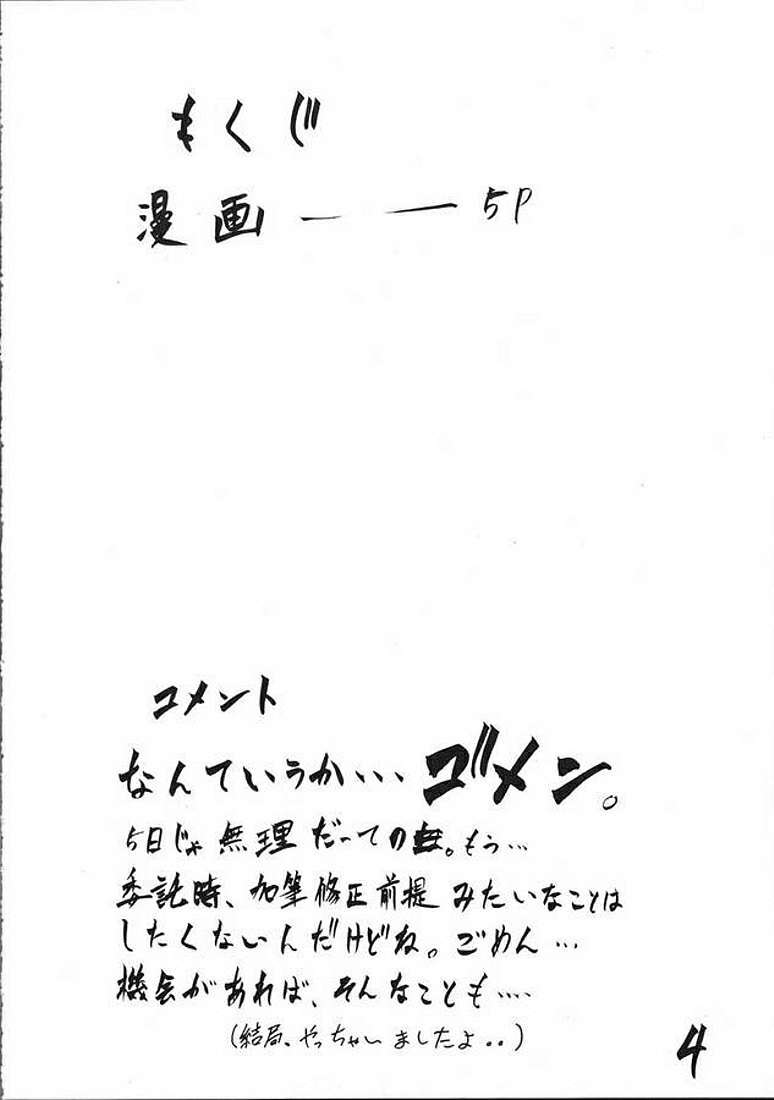 もくじ
漫画 ー ー 5P
コメント
なんていうか… ゴメン。
5日じゃ無理だっての。もう…
委託時、加筆修正前提みたいなことは
したくないんだけどね。ごめん…
機会があれば、そんなことも….
(結局、やっちゃいましたよ..)
4